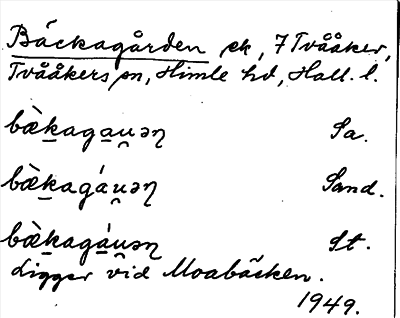 Bäckagården ek, 7 Tvååker,
Tvååkers sn, Himle hd, Hall. l.
bæ̀ḵaga̱u̯ən̥ Sa.
bæ̀ḵagáu̯ən̥ Sand.
bæ̀ḵagá̱u̯ən̥ St.
Ligger vid Moabäcken.
1949.